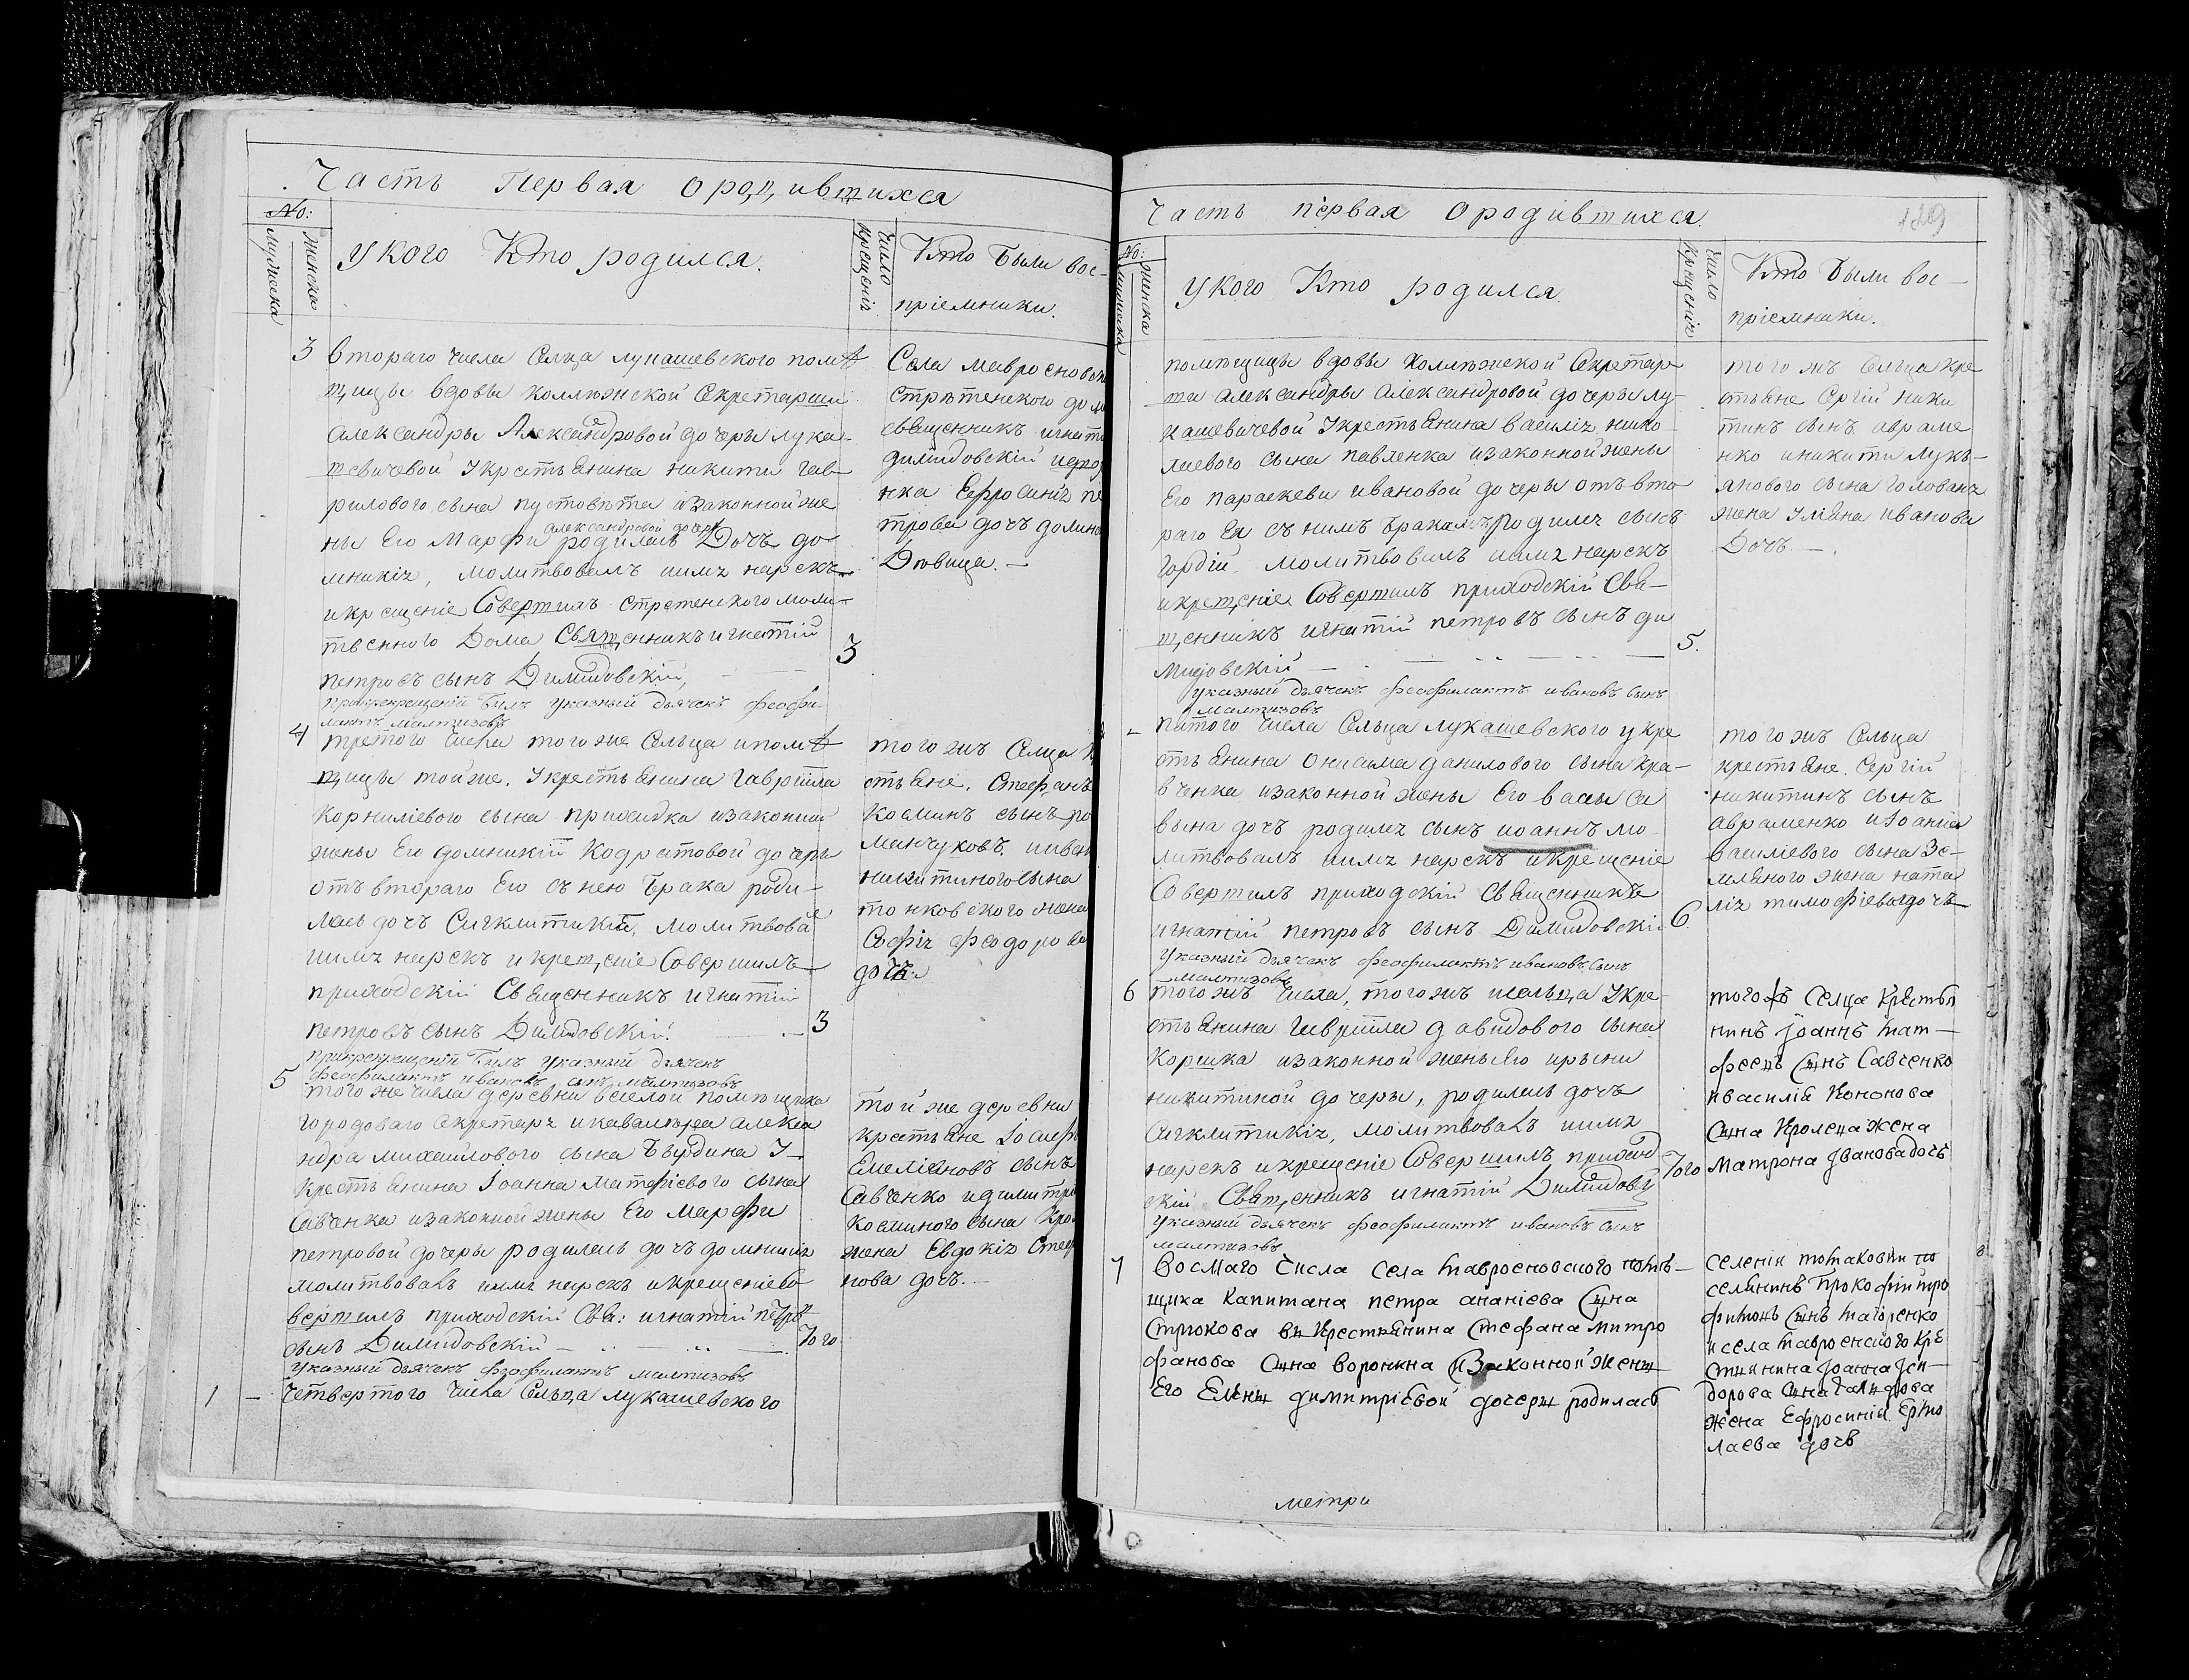 Часть Первая о родившихся
No:
мужеска
женска
у кого Кто родился.
Число крещенія
Кто были вос-
пріемники.
3 втораго числа Селца лукашевского помѣ
щицы вдовы коллѣжской Секретарши
Александры Александровой дочеры лука-
шевичевой У крестьянина никиты гав-
рилового сына пустовѣта и законной же
ны Его Марфи александровой дочеры родилась Дочь до
мникія, молитвовалъ имя нарекъ
и крещеніе Совершилъ стретенского моли-
твенного Дома Священникъ игнатій
петровъ сынъ Димидовскій, 3
при крещеніи былъ указный дьячекъ феофи
лактъ малтизовъ
Села мавроеновск
стрѣтенского дом
священникъ игнати
димидовскій и
нка Ефросинія пе
трова дочь долин
Дѣвица. —
4 третого числа того же Сельца и помѣ
щицы той же. У крестьянина гавріила
корниліевого сына приходка и законной
жены Его домникіи Кодратовой дочеры
отъ втораго Его съ нею брака роди-
лась дочь Сигклитикія, молитвовалъ
имя нарекъ и крещеніе Совершилъ
приходскій Священникъ игнатій
петровъ сынъ Димидовскій. — 3
при крещеніи былъ указный дьячекъ
феофилактъ ивановъ сынъ малтизовъ
того жъ Селца к
стьяне. Стефанъ
косминъ сынъ ро
манчуковъ, и иван
никитиного сына
тонковского жена
Софія феодорова
дочь
5 того же числа деревни веселой помѣщика
городоваго секретаря и кавалѣра алекса
ндра михайлового сына Бырдина У
крестьянина Іоанна матфіевого сына
Савченка и законной жены Его марфи
петровой дочеры родилась дочь домникія
молитвовалъ имя нарекъ и крещеніе со
вершилъ приходскій Свя: игнатій петровъ
сынъ Димидовскій — .. — .. — Того
указный дьячекъ феофилактъ малтизовъ
той же деревни
крестьяне Іосифъ
Емеліановъ сынъ
Савченко и димитри
косминого сына Кро
жена Евдокія Стеф
нова дочь. —
1 — четвертого числа Сельца лукашевского
Часть первая о родившихся
129
No:
мужеска
женска
у кого Кто родился.
Число крещенія
Кто были вос-
пріемники.
помѣщицы вдовы коллѣжской Секретар
ши александры александровой дочеры лу-
кашевичевой У крестьянина василія нико-
лаевого сына павленка и законной жены
Его параскеви ивановой дочеры отъ вто
раго Ея съ нимъ бракамъ родился сынъ
гордій молитвовалъ имя нарекъ
и крещеніе Совершилъ приходскій Свя-
щенникъ игнатій петровъ сынъ ди
мидовскій — 5.
указный дьячекъ феофилактъ ивановъ сынъ
малтизовъ
того жъ Сельца кре
стьяне Сргій ники
тинъ сынъ авраме
нко и никити лукъ-
янового сына голована
жена Уліяна иванова
Дочь. —
2 — пятого числа Сельца лукашевского у кре
стьянина онисима данилового сына кра-
вченка и законной жены Его васы са
вына дочь родился сынъ иоаннъ мо
литвовалъ имя нарекъ и крещеніе
Совершилъ приходскій Священникъ
игнатій петровъ сынъ Димидовскій 6.
указный дьячекъ феофилактъ ивановъ сынъ
малтизовъ
того жъ Сельца
крестьяне. Сергій
никитинъ сынъ
авраменко и Іоанна
василіевого сына Зе-
мляного жена ната
лія тимофіева дочь
6 того жъ числа, того жъ сельца У кре-
стьянина гавріила давидового сына
коршка и законной жены Его ирыни
никитиной дочеры, родилась дочь
Сигклитикія, молитвовалъ имя
нарекъ и крещеніе Совершилъ приход
скій Священникъ игнатій Димидовс Того
указный дьячекъ феофилактъ ивановъ сынъ
малтизовъ
того жъ Селца Крестья
нинъ Іоаннъ мат—
феевъ Сынъ Савченко
и василія Кононова
Сына Кролеца жена
Матрона Іванова дочь
7 восмаго числа села мавроеновского помѣ—
щика Капитана петра ананіева Сына
Строкова въ Крестьянина Стефана митро
фанова Сына воронина и Законной жены
Его Елены димитріевой дочеры родилась
селенія томаковки по
селянинъ Прокофій тро
фимовъ Сынъ магоренко
и села мавроенского Кре
стьянина Іоанна Іси—
дорова Сына
жена Ефросинія Ермо
лаева дочь
метри